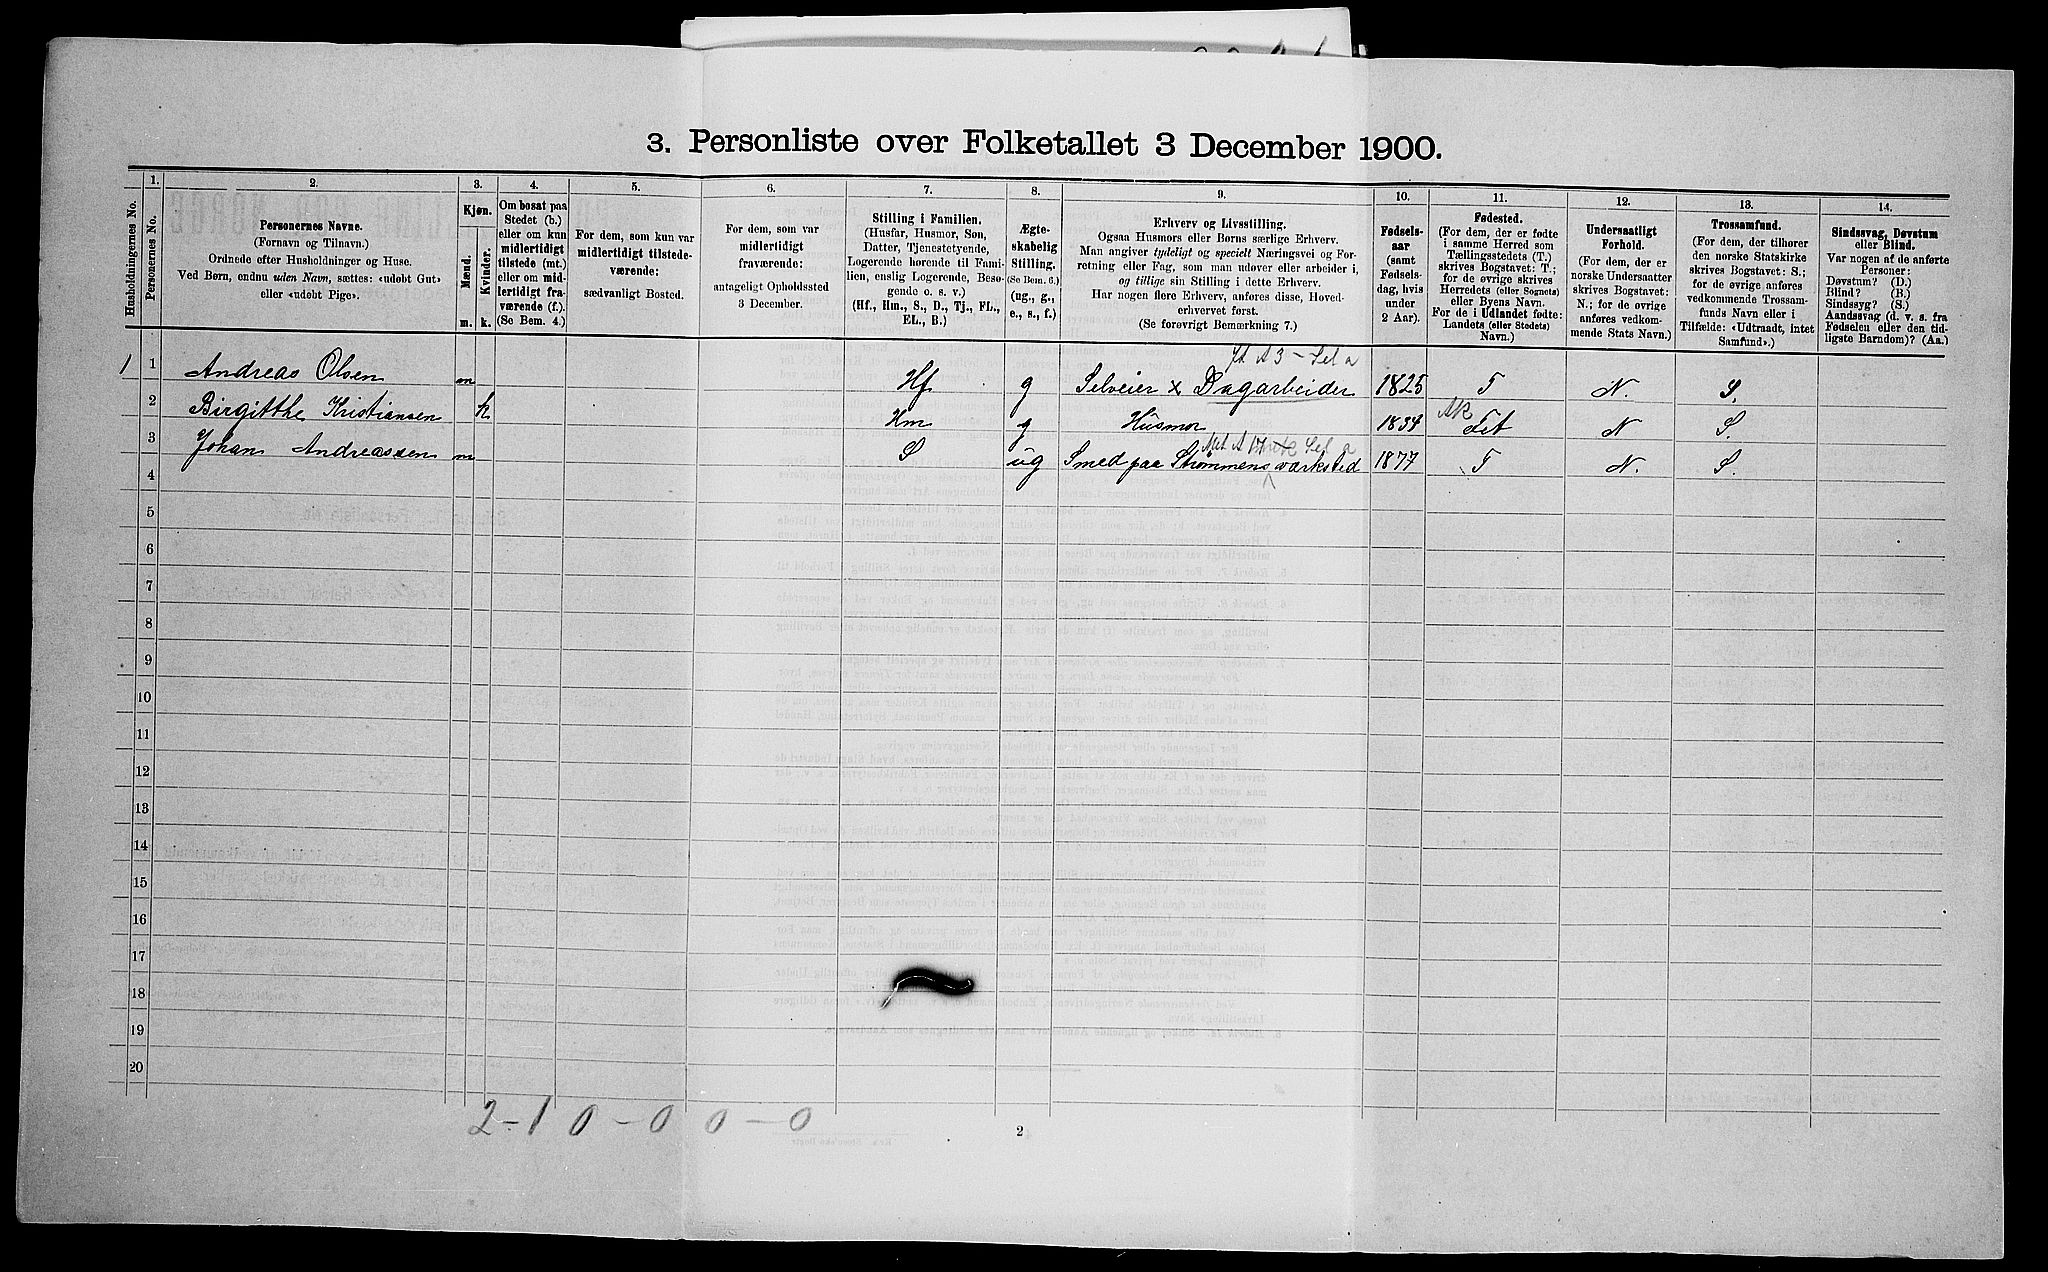 3. Personliste over Folketallet 3 December 1900.
1. 2. 3. 4. 5. 6. 7. 8. 9. 10. 11. 12. 13. 14.
Husholdningernes No.
Personernes No.
Personernes Navne.
(Fornavn og Tilnavn.)
Ordnede efter Husholdninger og Huse.
Ved Børn, endnu uden Navn, sættes: «udøbt Gut»
eller «udøbt Pige».
Kjøn.
Mænd.
Kvinder.
m. k.
Om bosat paa
Stedet (b.)
eller om kun
midlertidigt
tilstede (mt.)
eller om mid-
lertidigt fra-
værende (f.).
(Se Bem. 4.)
For dem, som kun var
midlertidigt tilstede-
værende:
sædvanligt Bosted.
For dem, som var
midlertidigt
fraværende:
antageligt Opholdssted
3 December.
Stilling i Familien.
(Husfar, Husmor, Søn,
Datter, Tjenestetyende,
Logerende hørende til Fami-
lien, enslig Logerende, Besø-
gende o. s. v.)
(Hf., Hm., S., D., Tj., FL.,
EL., B.)
Ægte-
skabelig
Stilling.
(Se Bem. 6.)
(ug., g.,
e., s., f.)
Erhverv og Livsstilling.
Ogsaa Husmors eller Børns særlige Erhverv.
Man angiver tydeligt og specielt Næringsvei og For-
retning eller Fag, som man udøver eller arbeider i,
og tillige sin Stilling i dette Erhverv.
Har nogen flere Erhverv, anføres disse, Hoved-
erhvervet først.
(Se forøvrigt Bemærkning 7.)
Fødsels-
aar
(samt
Fødsels-
dag, hvis
under
2 Aar).
Fødested.
(For dem, der er fødte
i samme Herred som
Tællingsstedets (T.)
skrives Bogstavet: T.;
for de øvrige skrives
Herredets (eller Sognets)
eller Byens Navn.
For de i Udlandet fødte:
Landets (eller Stedets)
Navn.)
Undersaatligt
Forhold.
(For dem, der er
norske Undersaatter
skrives Bogstavet:
N.; for de øvrige
anføres vedkom-
mende Stats Navn.)
Trossamfund.
(For dem, der tilhører
den norske Statskirke
skrives Bogstavet: S.;
for de øvrige anføres
vedkommende Trossam-
funds Navn eller i
Tilfælde: «Udtraadt, intet
Samfund».)
Sindssvag, Døvstum
eller Blind.
Var nogen af de anførte
Personer:
Døvstum? (D.)
Blind? (B.)
Sindssyg? (S.)
Aandssvag (d. v. s. fra
Fødselen eller den tid-
ligste Barndom)? (Aa.)
1 1 Andreas Olsen m Hf g Selveier x Dagarbeider 1825 T N. S.
2 Birgitthe Kristiansen k Hm g Husmor 1834 Ak Fet N S.
3 Johan Andreassen m S ug Smed paa Strømmens værksted 1877 T N. S.
4
5
6
7
8
9
10
11
12
13
14
15
16
17
18
19
20
2-1 0-0 0-0
2